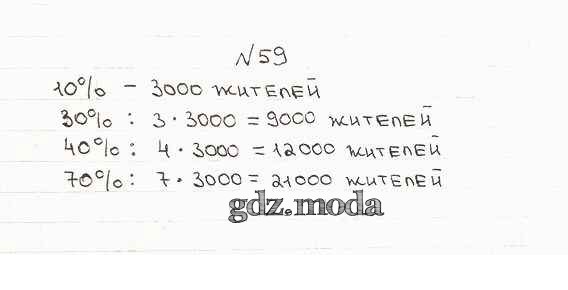 №59
10% - 3000 жителей
30% : 3 · 3000 = 9000 жителей
40% : 4 · 3000 = 12000 жителей
70% : 7 · 3000 = 21000 жителей
gdz.moda